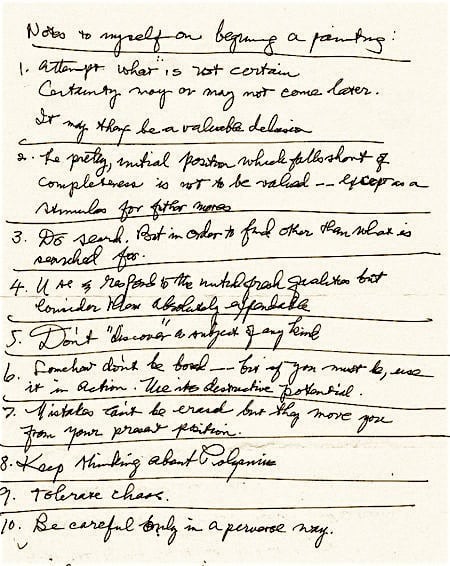 Notes to myself on beginning a painting:
1. Attempt what is not certain
Certainty may or may not come later.
It may then be a valuable delusion
2. The pretty, initial position which falls short of
completeness is not to be valued -- except as a
stimulus for further moves
3. Do search. But in order to find other than what is
searched for.
4. Use & respond to the initial fresh qualities but
consider them absolutely expendable
5. Don't "discover" a subject of any kind
6. Somehow don't be bored -- but if you must be, use
it in action. Use its destructive potential.
7. Mistakes can't be erased but they move you
from your present position.
8. Keep thinking about Polyanna
9. Tolerate chaos.
10. Be careful only in a perverse way.